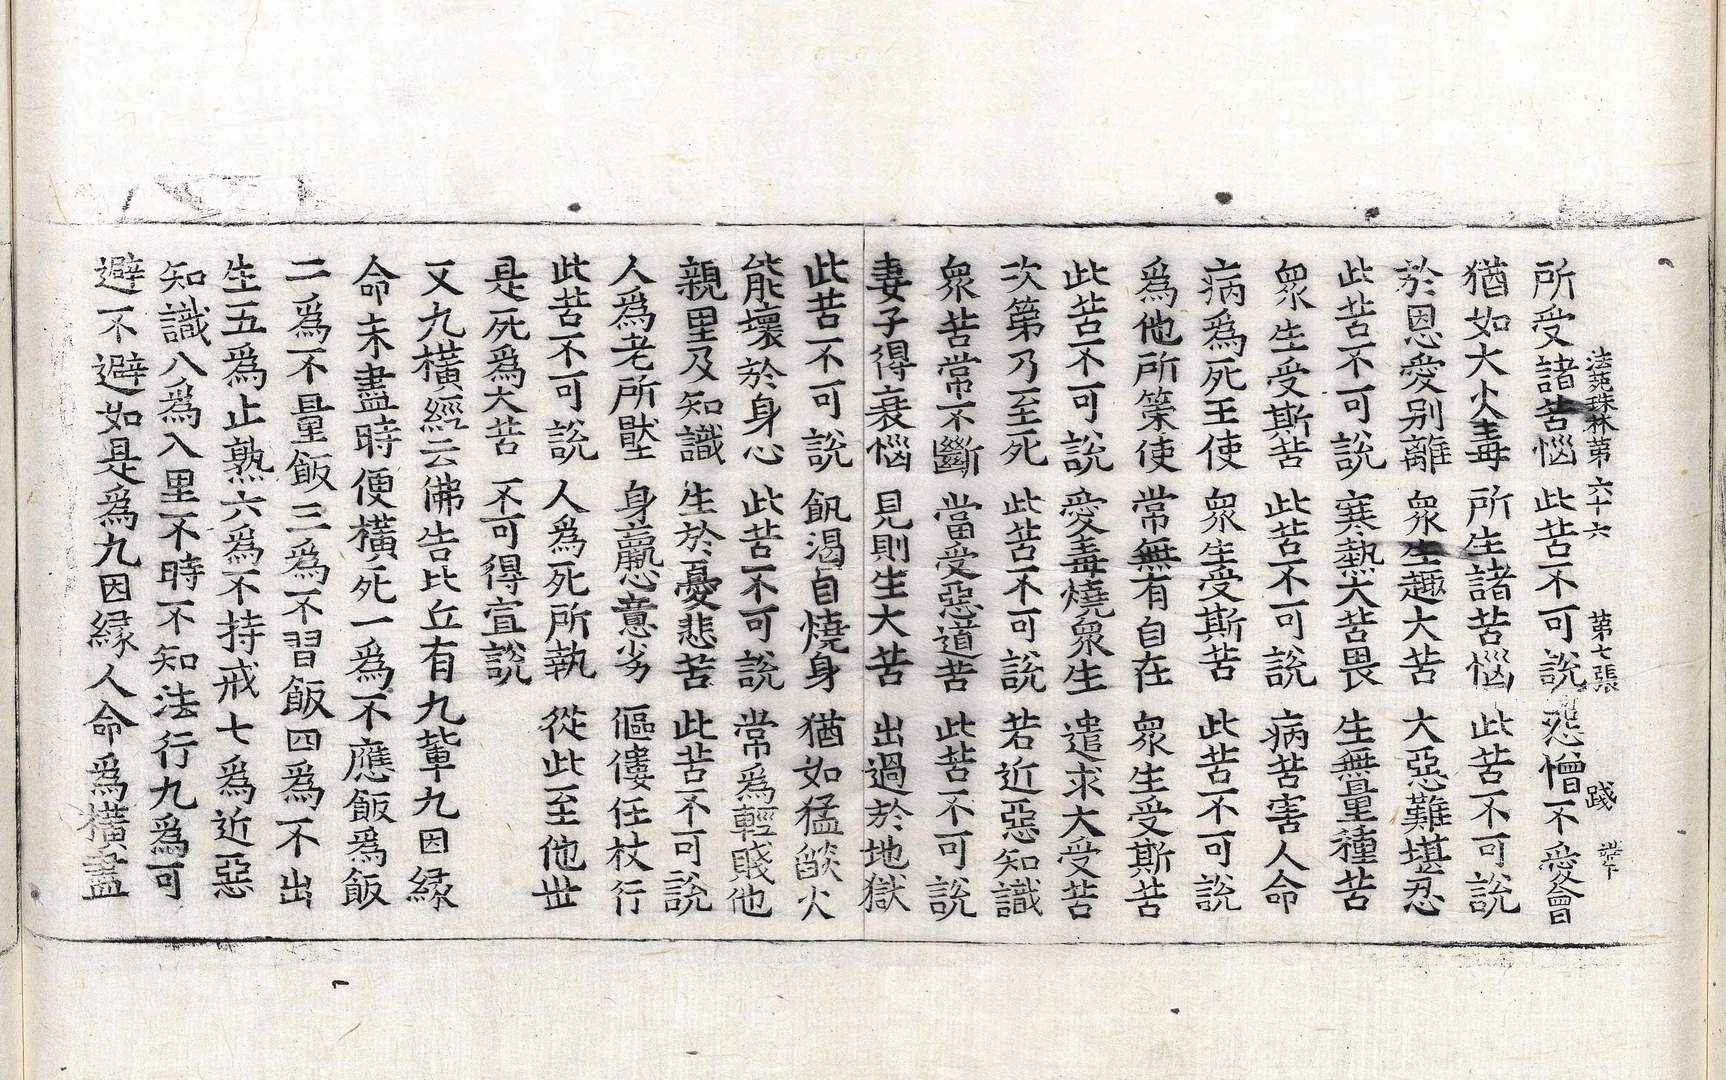 法苑珠林第六十六 第七張 踐
所受諸苦惱 此苦不可說 怨憎不愛會
猶如大火毒 所生諸苦惱 此苦不可說
於恩愛別離 衆生趣大苦 大惡難堪忍
此苦不可說 寒熱大苦畏 生無量種苦
衆生受斯苦 此苦不可說 病苦害人命
病爲死王使 衆生受斯苦 此苦不可說
爲他所策使 常無有自在 衆生受斯苦
此苦不可說 愛毒燒衆生 遣求大受苦
次第乃至死 此苦不可說 若近惡知識
衆苦常不斷 當受惡道苦 此苦不可說
妻子得衰惱 見則生大苦 出過於地獄
此苦不可說 飢渴自燒身 猶如猛燄火
能壞於身心 此苦不可說 常爲輕賤他
親里及知識 生於憂悲苦 此苦不可說
人爲老所壓 身羸心意劣 傴僂任杖行
此苦不可說 人爲死所執 從此至他世
是死爲大苦 不可得宣說
又九橫經云佛告比丘有九輩九因緣
命未盡時便橫死一爲不應飯爲飯
二爲不量飯三爲不習飯四爲不出
生五爲止熟六爲不持戒七爲近惡
知識八爲入里不時不知法行九爲可
避不避如是爲九因緣人命爲橫盡